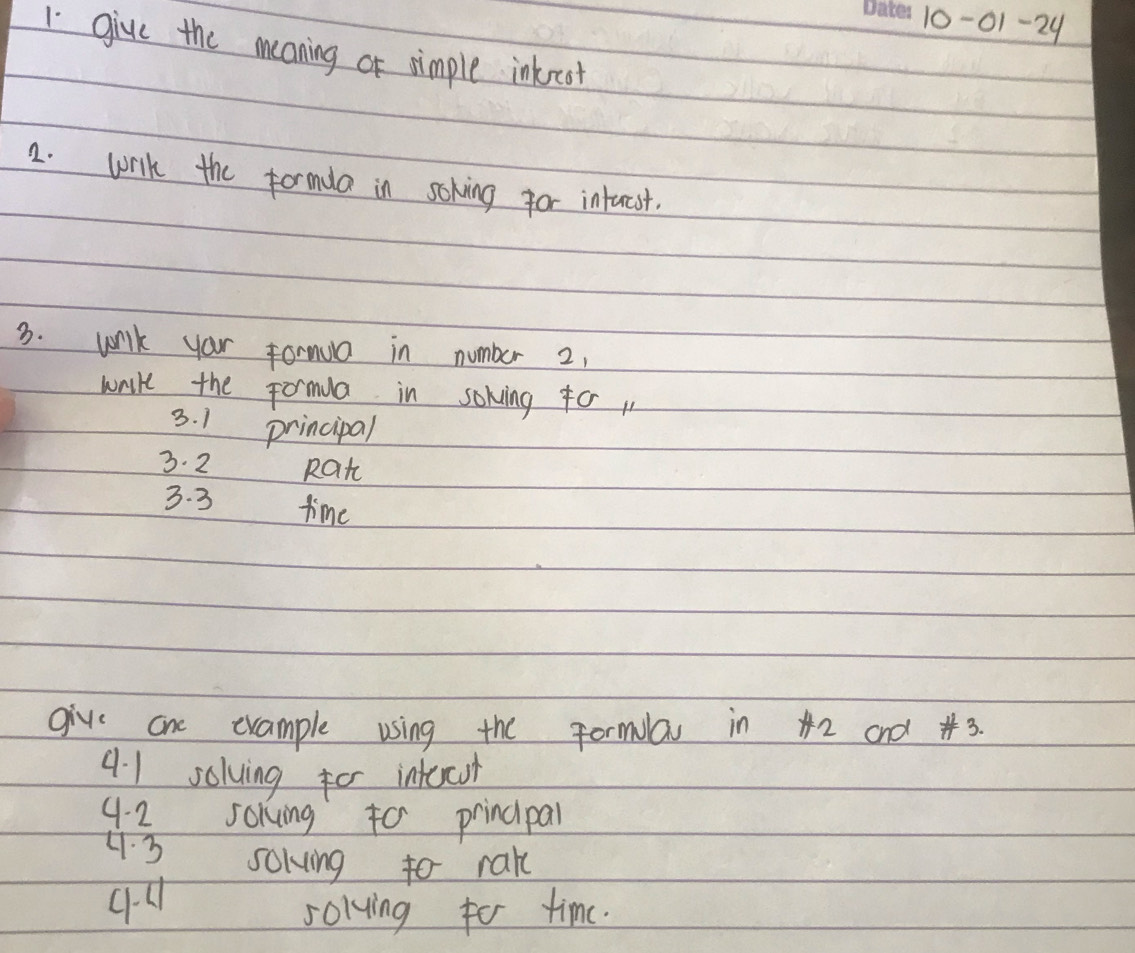 Date: 10-01-24
1. give the meaning of simple interest
2. Write the formula in solving for interest.
3. Write your formula in number 2,
write the formula in solving for "
3.1 principal
3.2 Rate
3.3 time
give one example using the formulas in #2 and #3.
4.1 solving for interest
4.2 solving for principal
4.3 solving for rate
4.4 solving for time.